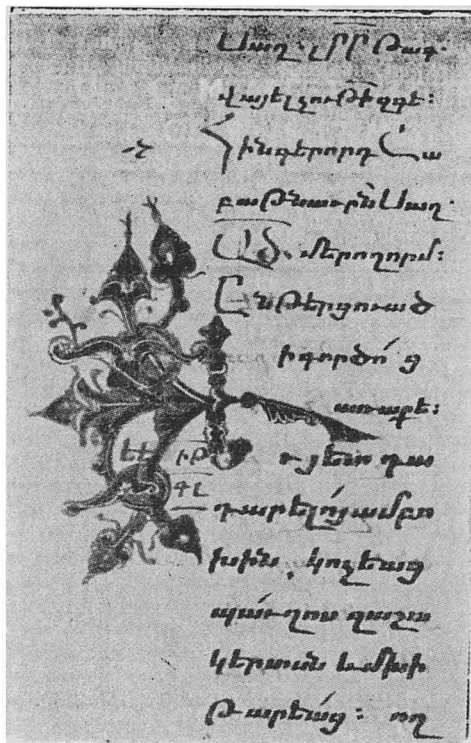 Սաղ. Թագ.
վայելչութի զգե:
Հինգերորդ Շա
բաթ Սաղ.
ԱԾ. մեր ողորմ:
Ընթերցուած
ի գործո՛ց
առաքե:
ւ յետ դա
դարելո՛յ ամբո
խին, կոչեաց
պաւղոս զաշա
կերտսն եւ մխի
թարեա՛ց: ող